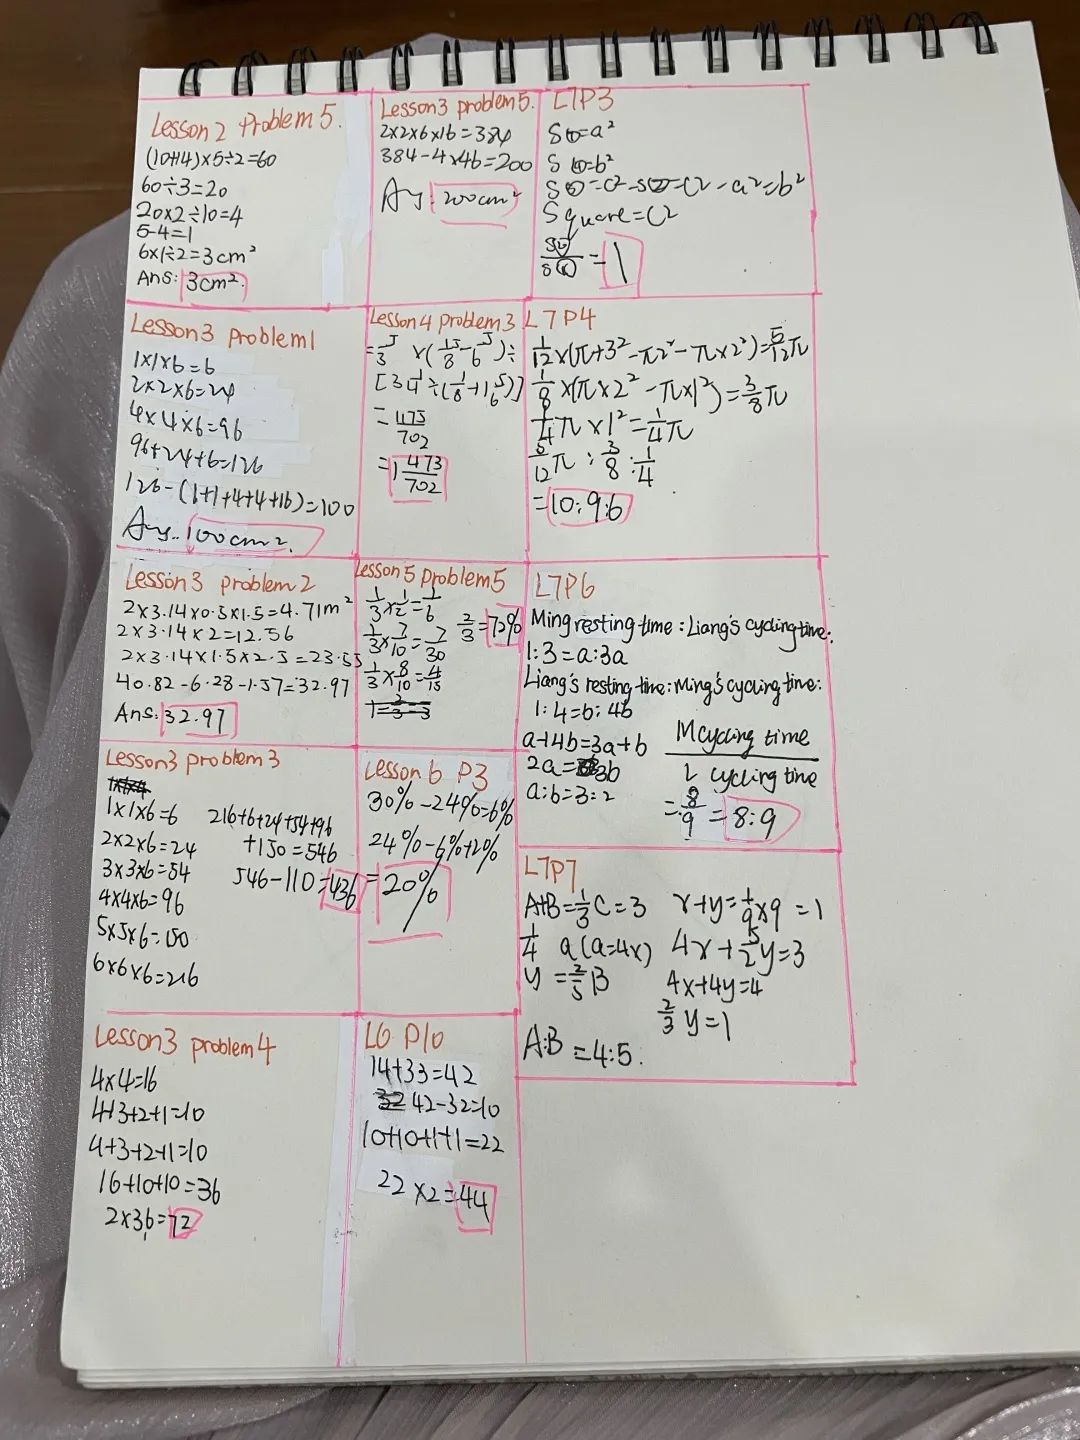 Lesson 2 Problem 5.
(10+14)×5÷2=60
60÷3=20
20×2÷10=4
5-4=1
6×1÷2=3cm²
Ans: 3cm².
Lesson3 problem5.
2×2×6×16=384
384-4×46=200
Ans: 200cm²
L7P3
S=a²
S=b²
Square=C²
=1
Lesson3 problem1
1×1×6=6
2×2×6=24
4×4×6=96
96+24+6=126
126-(1+1+4+4+16)=100
Ans: 100cm².
Lesson4 problem3
=473/702
=1 473/702
L7P4
1/12×(π+3²-π2²-π×2²)=5/12π
1/8×(π×2²-π×1²)=3/8π
1/4π×1²=1/4π
5/12π:3/8:1/4
=10:9:6
Lesson3 problem2
2×3.14×0.5×1.5=4.71m²
2×3.14×2=12.56
2×3.14×1.5×2.5=23.55
40.82-6.28-1.57=32.97
Ans: 32.97
Lesson5 problem5
1/3×1/2=1/6
1/3×7/10=7/30
1/3×8/10=4/15
2/3=72%
L7P6
Ming resting time:Liang's cycling time:
1:3=a:3a
Liang's resting time:Ming's cycling time:
1:4=b:4b
a+4b=3a+b
2a=3b
a:b=3:2
M cycling time
L cycling time
=8/9=8:9
Lesson3 problem3
1×1×6=6
2×2×6=24
3×3×6=54
4×4×6=96
5×5×6=150
6×6×6=216
216+6+24+54+96
+150=546
546-110=436
Lesson 6 P3
30%-24%=6%
24%-6%+2%
=20%
L7P7
A+B=1/3C=3
1/4 a(a=4x)
y=2/5B
A:B=4:5.
x+y=1/9×9=1
4x+5/2y=3
4x+4y=4
2/3y=1
Lesson3 problem4
4×4=16
4+3+2+1=10
4+3+2+1=10
16+10+10=36
2×36=72
L6 P10
14+33=42
42-32=10
10+10+1+1=22
22×2=44